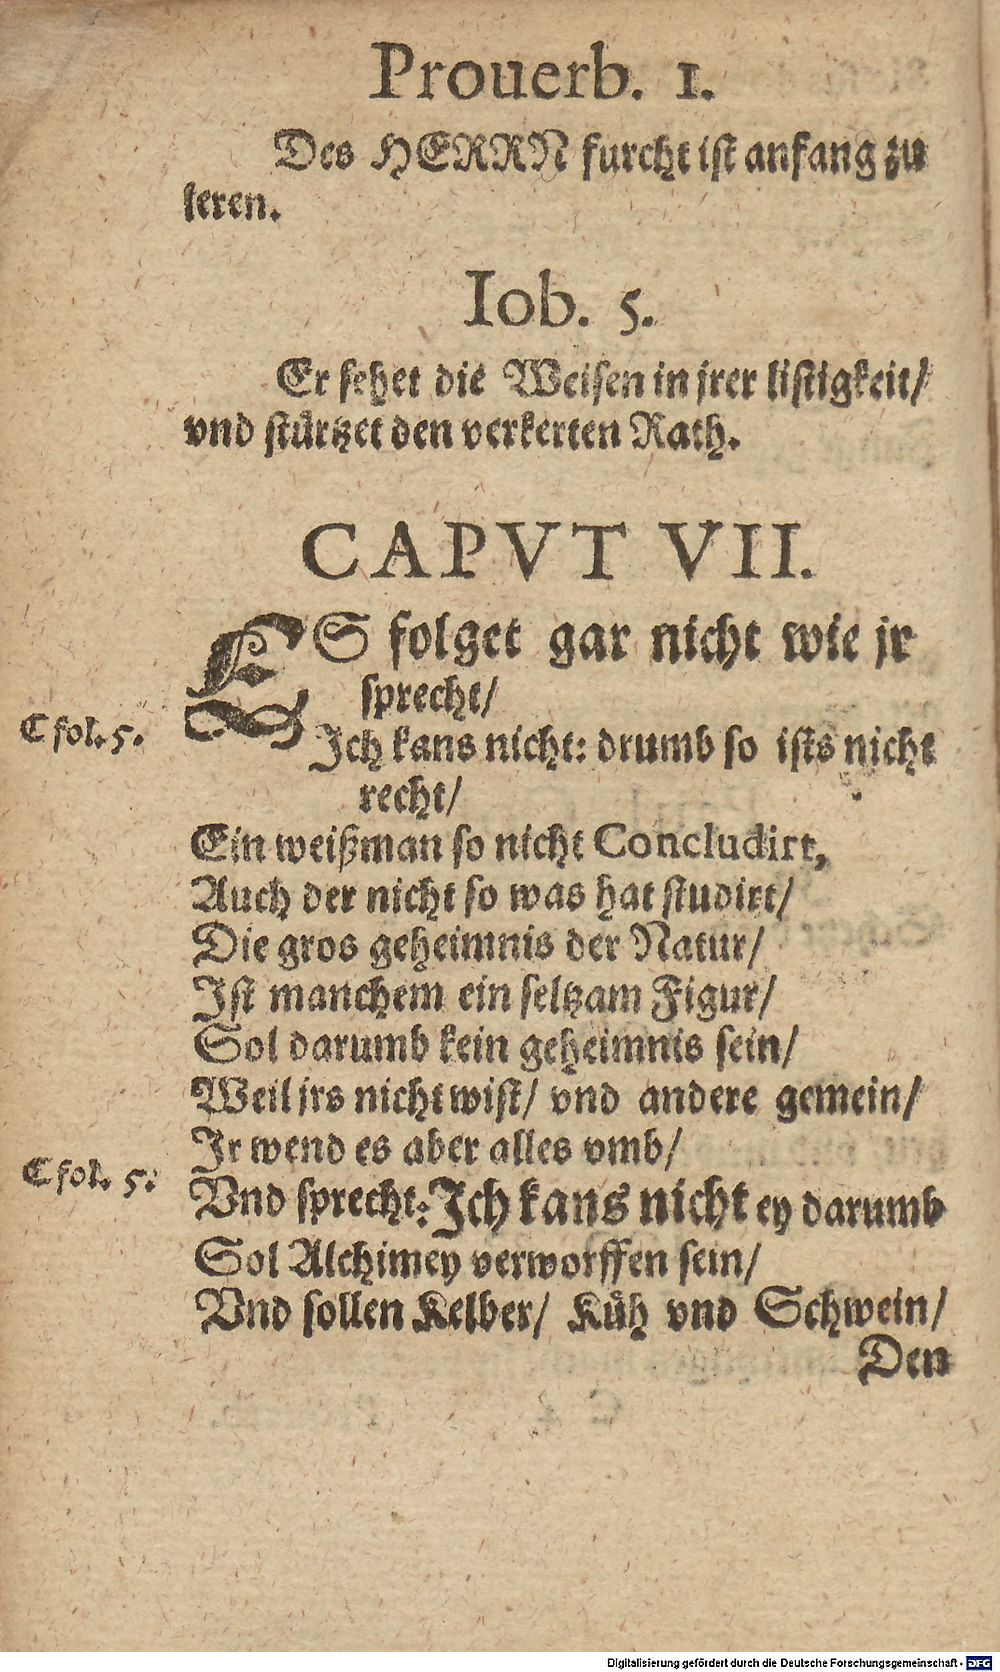 Prouerb. 1.
Des HERRN furcht ist anfang zu
leren.
Iob. 5.
Er fehet die Weisen in jrer listigkeit/
vnd stürtzet den verkerten Rath.
CAPVT VII.
ES folget gar nicht wie jr
sprecht/
C fol. 5.
Ich kans nicht: drumb so ists nicht
recht/
Ein weißman so nicht Concludirt,
Auch der nicht so was hat studirt/
Die gros geheimnis der Natur/
Ist manchem ein seltzam Figur/
Sol darumb kein geheimnis sein/
Weil jrs nicht wist/ vnd andere gemein/
Ir wend es aber alles vmb/
C fol. 5.
Vnd sprecht: Ich kans nicht ey darumb
Sol Alchimey verworffen sein/
Vnd sollen Kelber/ Küh vnd Schwein/
Den
Digitalisierung gefördert durch die Deutsche Forschungsgemeinschaft - DFG